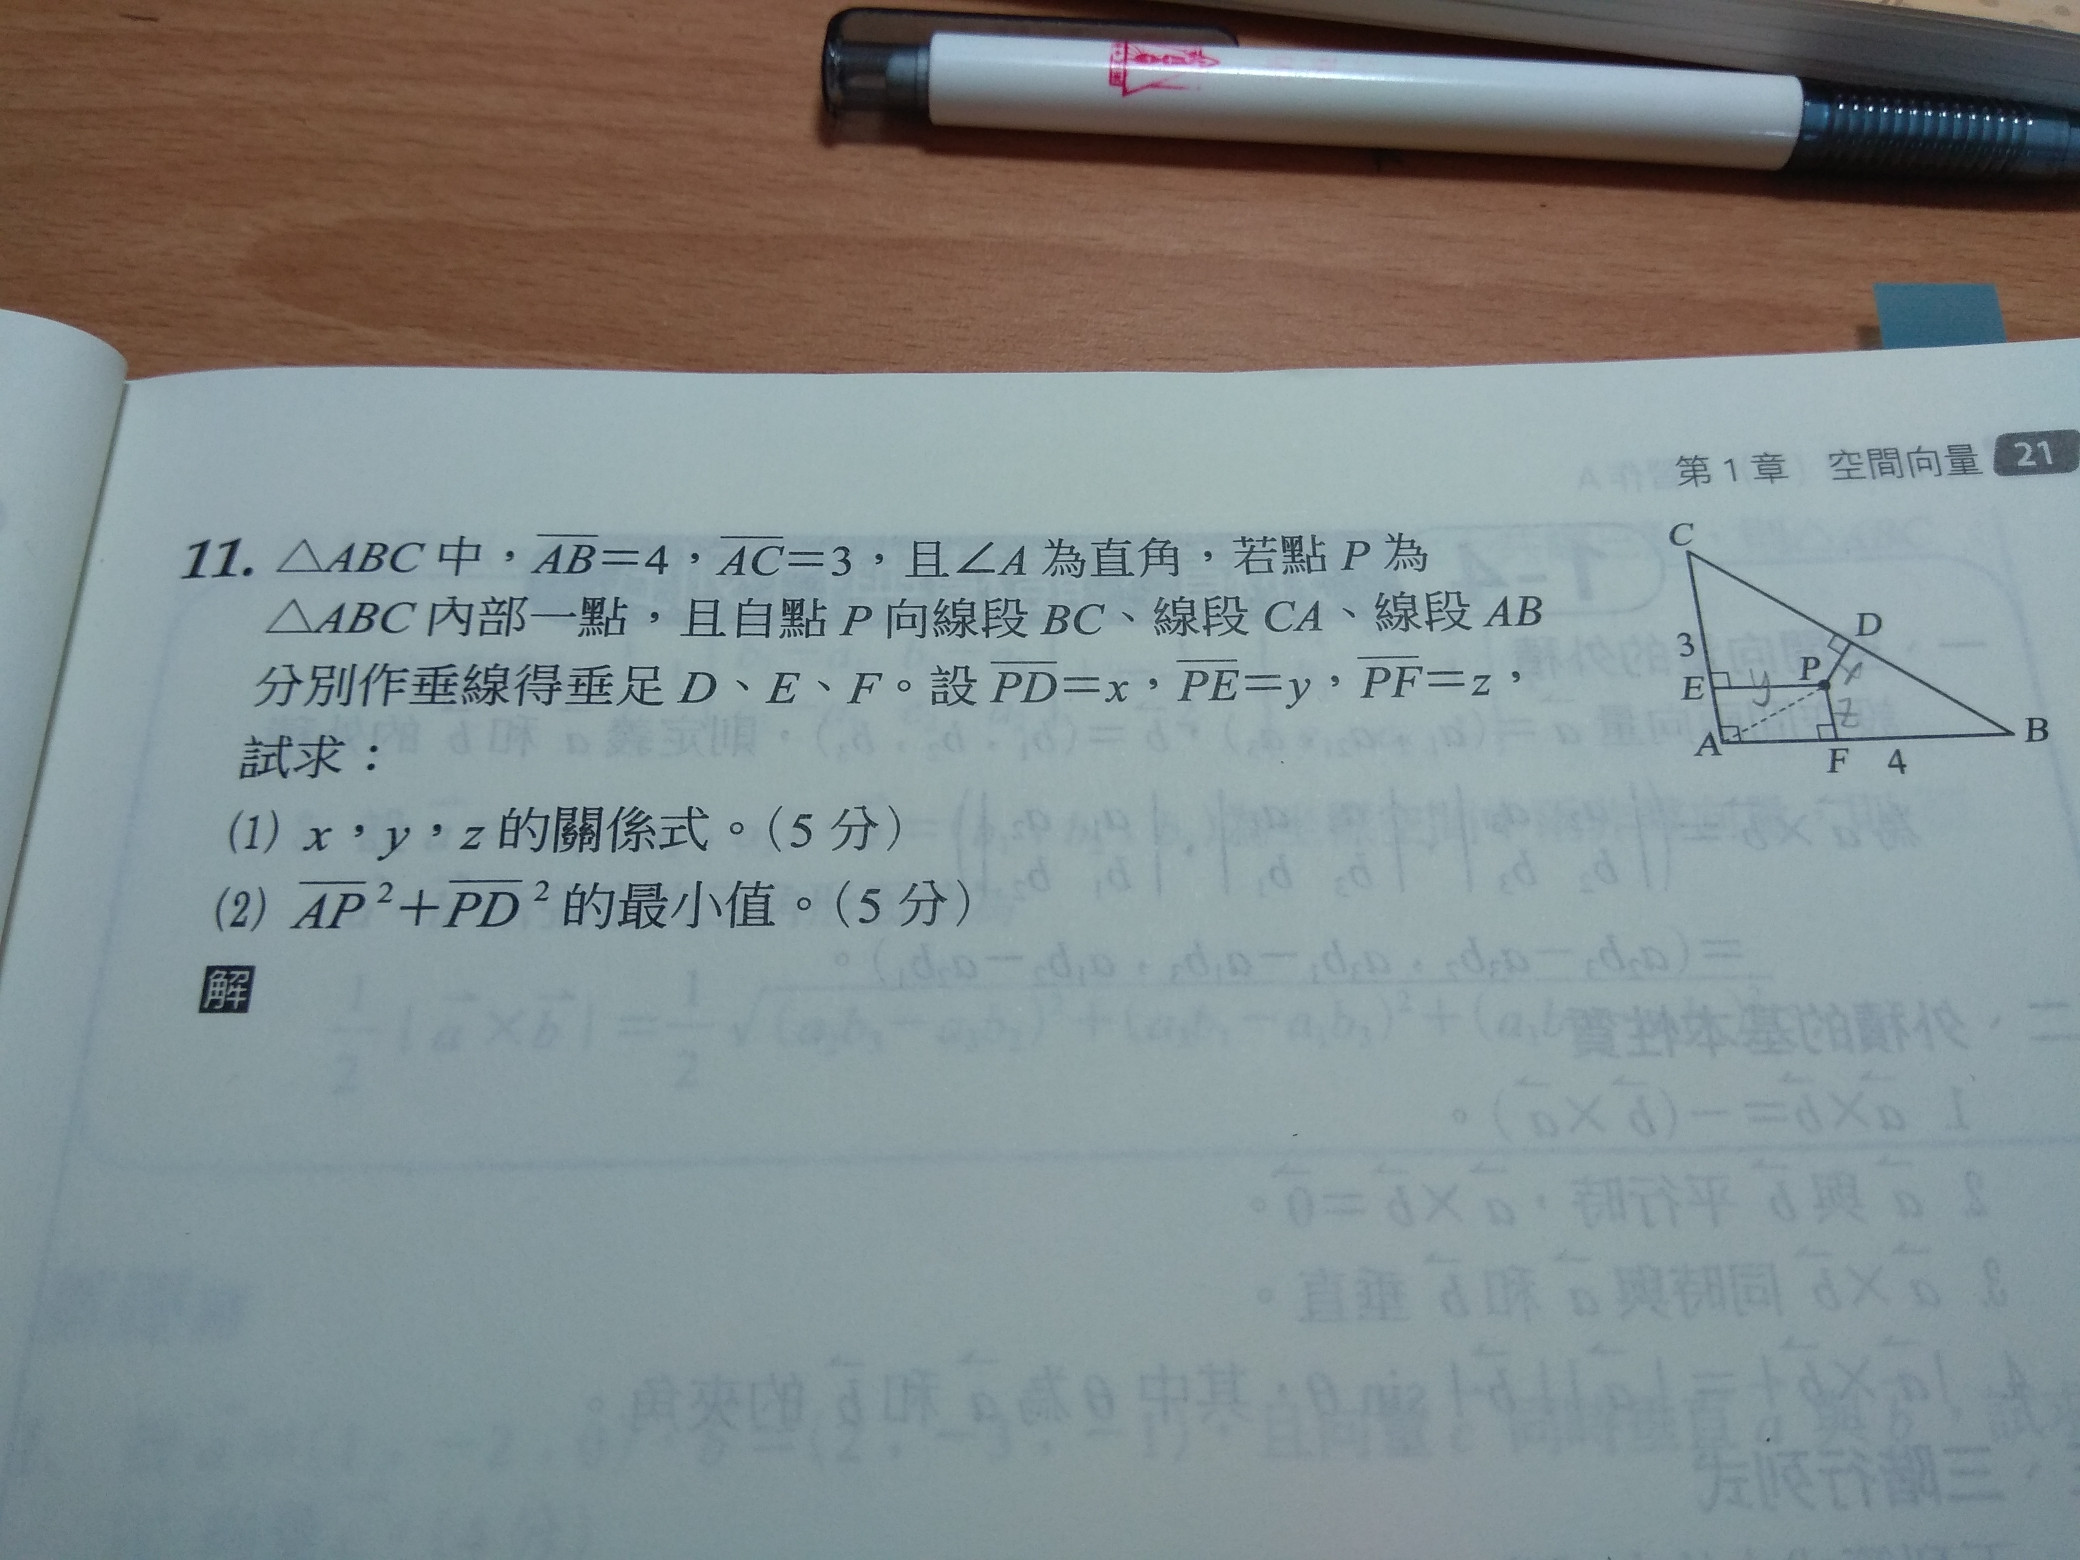 第 1 章 空間向量 21
11. △ABC 中，AB=4，AC=3，且∠A 為直角，若點 P 為
△ABC 內部一點，且自點 P 向線段 BC、線段 CA、線段 AB
分別作垂線得垂足 D、E、F。設 PD=x，PE=y，PF=z，
試求：
(1) x，y，z 的關係式。(5 分)
(2) AP²+PD² 的最小值。(5 分)
解
C
D
3
P
x
E
y
z
A
B
F
4